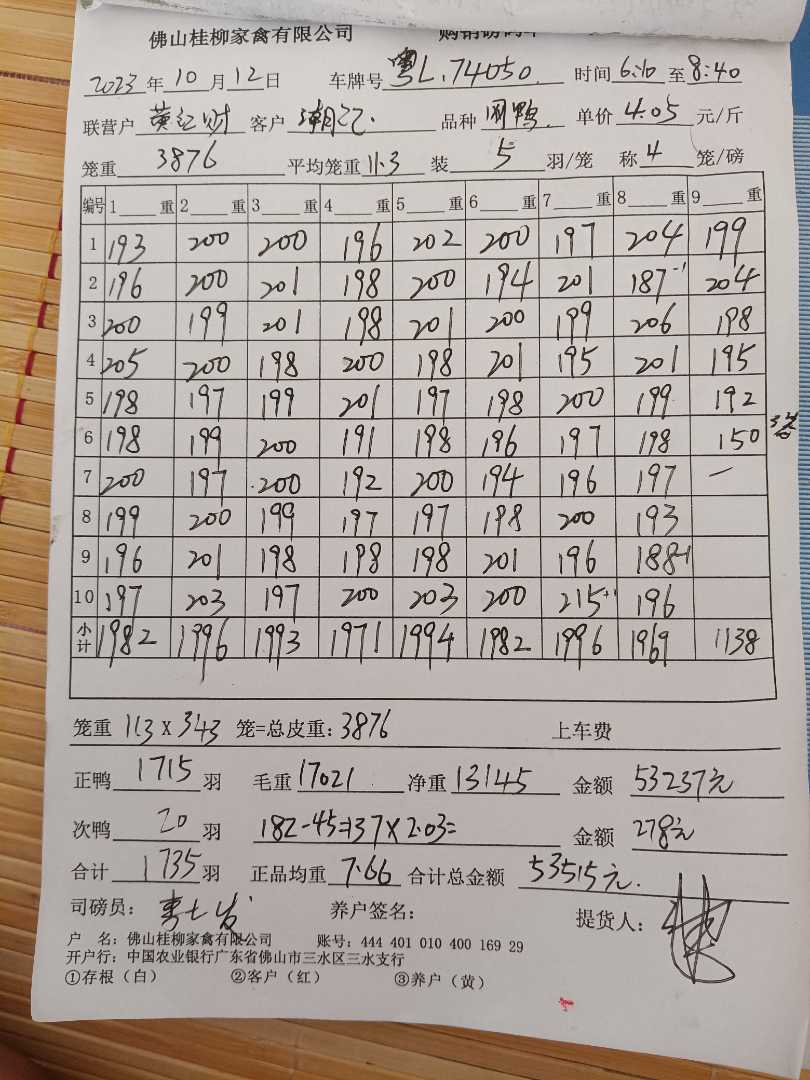 佛山桂柳家禽有限公司 购销磅码单
2023年10月12日 车牌号 粤L.74050. 时间6:10至8:40
联营户 黄红财 客户 潮记. 品种 肉鸭. 单价 4.05 元/斤
笼重 3876 平均笼重 11.3 装 5 羽/笼 称 4 笼/磅
编号 1 重 2 重 3 重 4 重 5 重 6 重 7 重 8 重 9 重
1 193 200 200 196 202 200 197 204 199
2 196 200 201 198 200 194 201 187-1 204
3 200 199 201 198 201 200 199 206 198
4 205 200 198 200 198 201 195 201 195
5 198 197 199 201 197 198 200 199 192
6 198 199 200 191 198 196 197 198 150 3笼
7 200 197 200 192 200 194 196 197 —
8 199 200 199 197 197 198 200 193
9 196 201 198 198 198 201 196 188-1
10 197 203 197 200 203 200 215+1 196
小计 1982 1996 1993 1971 1994 1982 1996 1969 1138
笼重 11.3 X 343 笼=总皮重: 3876 上车费
正鸭 1715 羽 毛重 17021 净重 13145 金额 53237元
次鸭 20 羽 182-45=137×2.03= 金额 278元
合计 1735 羽 正品均重 7.66 合计总金额 53515元.
司磅员: 养户签名: 提货人:
户 名: 佛山桂柳家禽有限公司 账号: 444 401 010 400 169 29
开户行: 中国农业银行广东省佛山市三水区三水支行
①存根（白） ②客户（红） ③养户（黄）